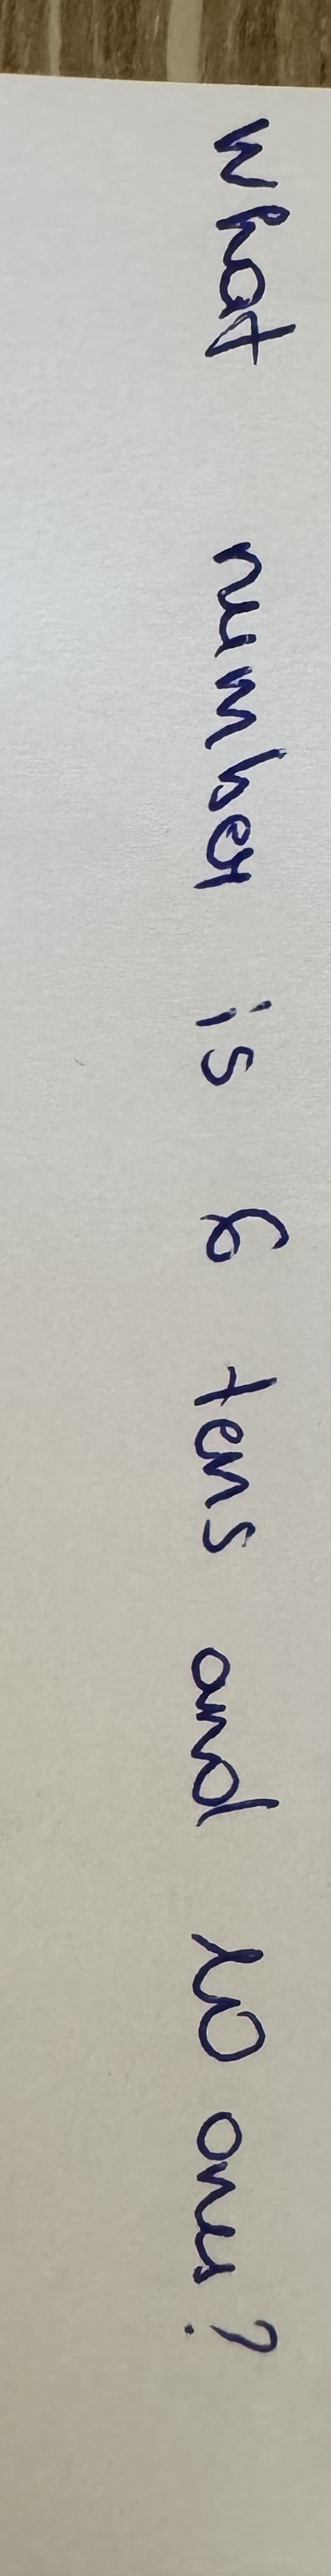 What number is 6 tens and 10 ones?